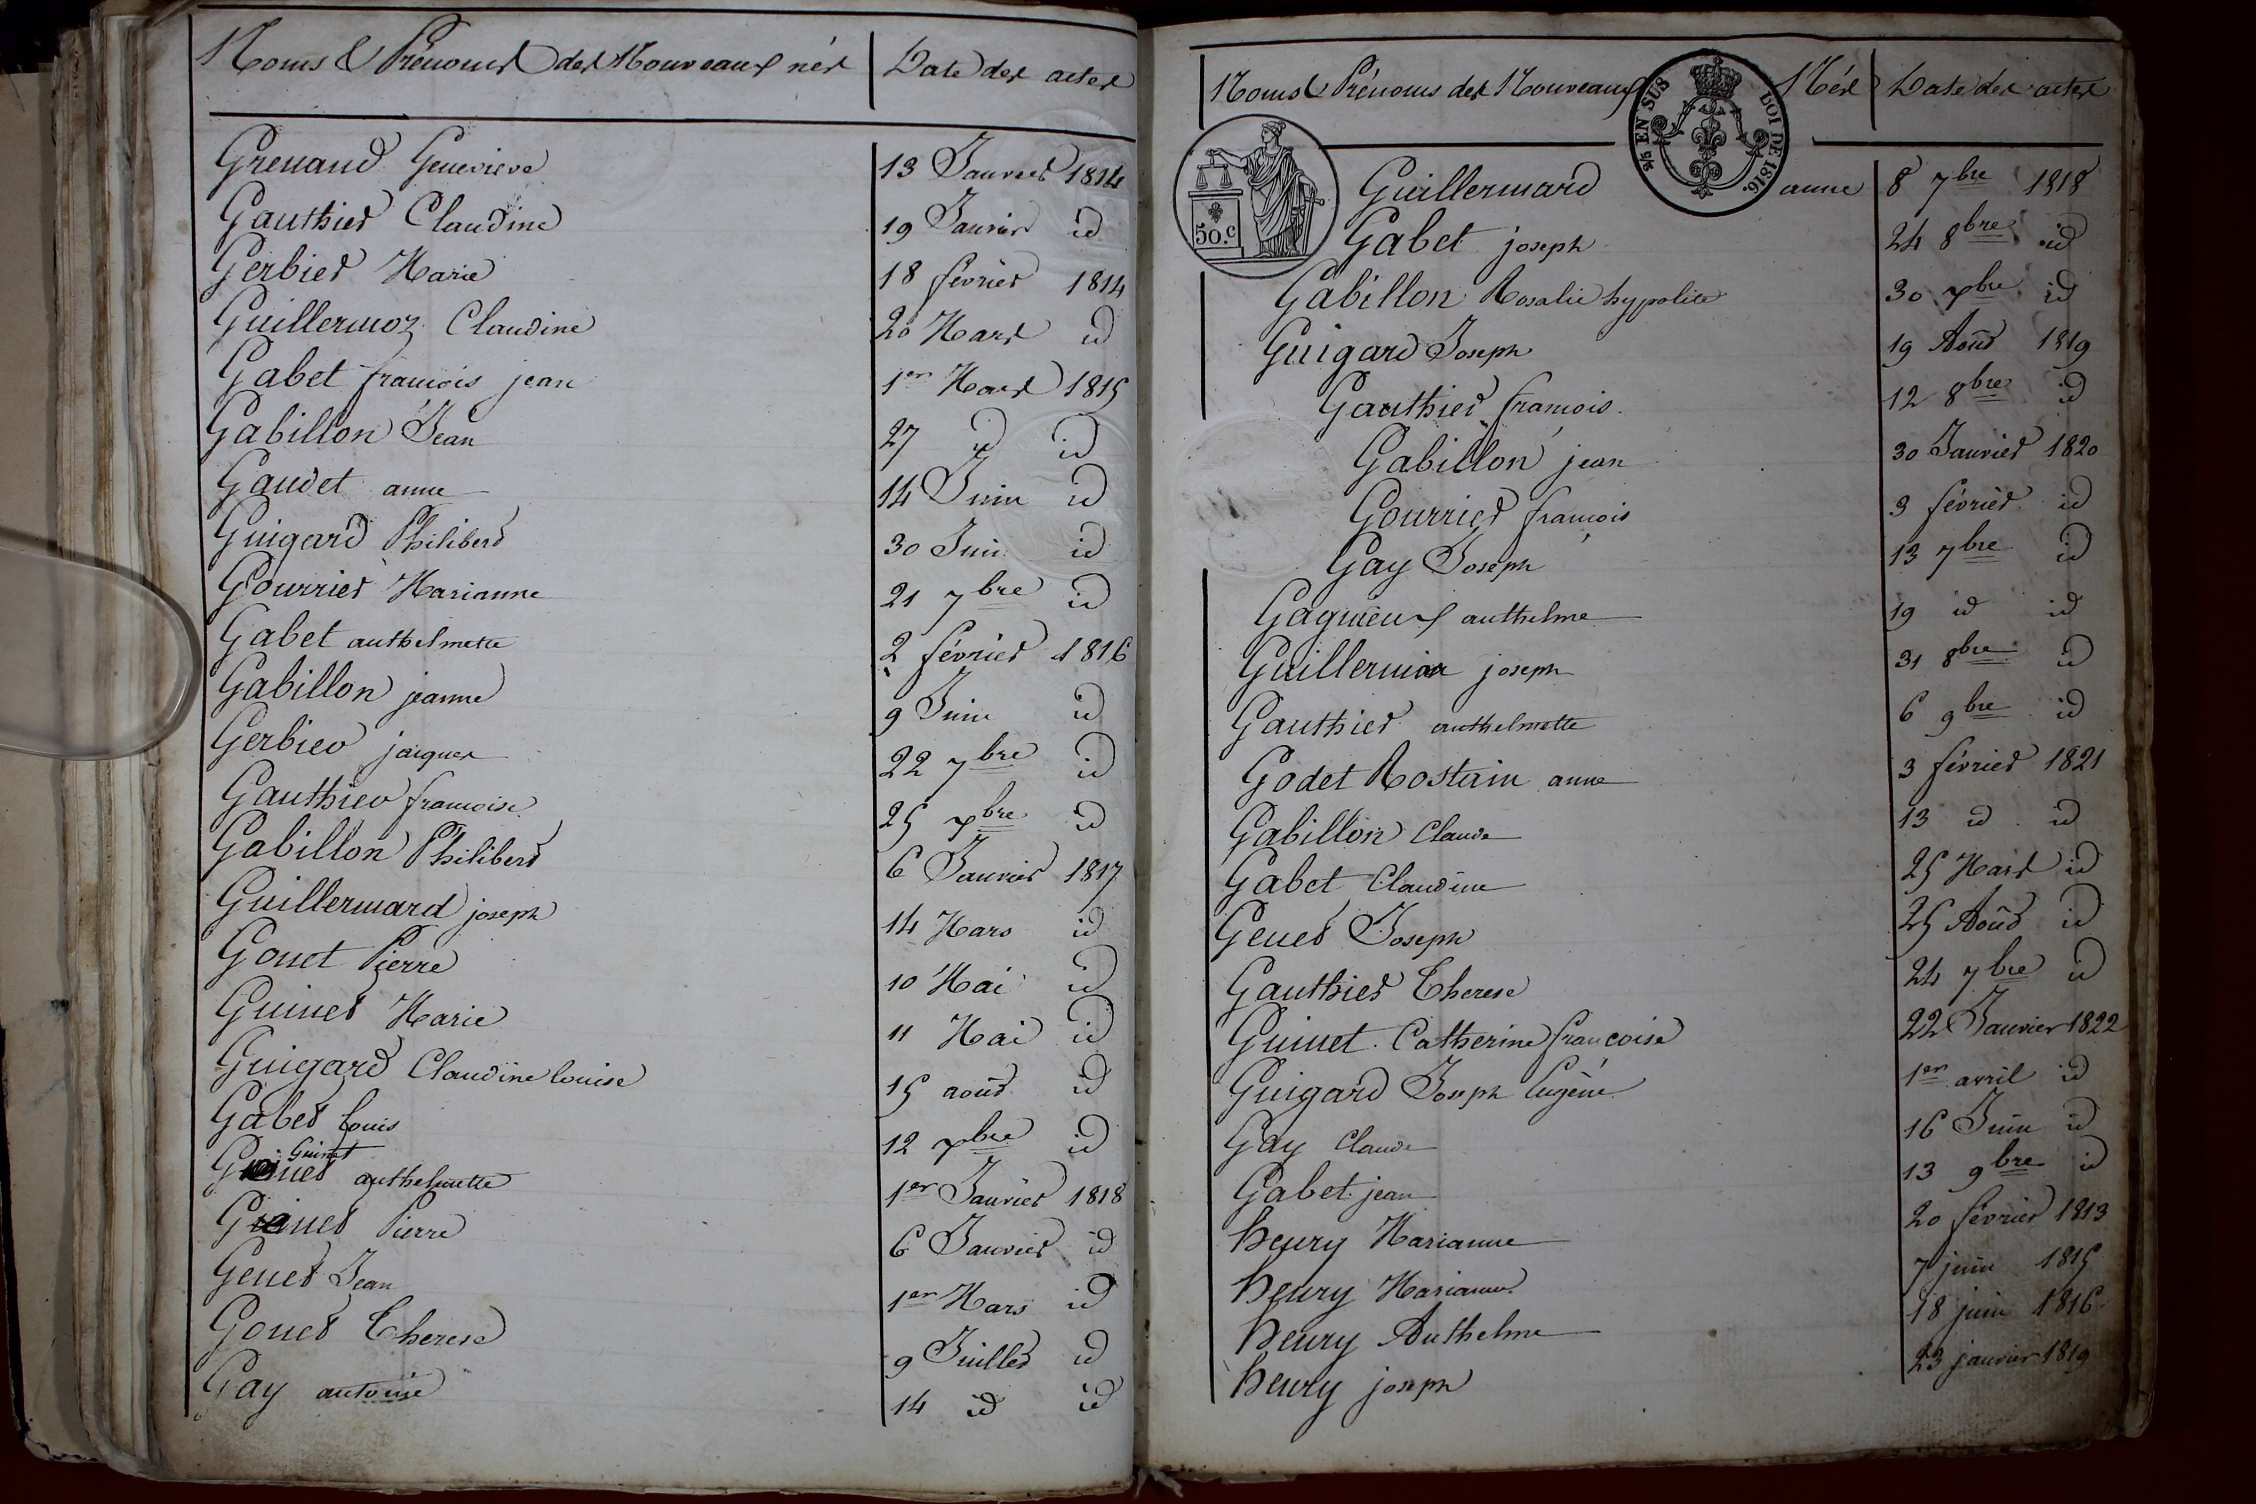 Noms & Prénoms des Nouveaux nés Date des actes
Grenaud Genevieve 13 Janvier 1814
Gauthier Claudine 19 Janvier id
Gerbier Marie 18 février 1814
Guillermoz Claudine 20 Mars id
Gabet francois jean 1er Mars 1815
Gabillon Jean 27 id id
Gaudet anne 14 Juin id
Guigard Philibert 30 Juin id
Gourrier Marianne 21 7bre id
Gabet anthelmette 2 février 1816
Gabillon jeanne 9 Juin id
Gerbier jacques 22 7bre id
Gauthier francoise 25 xbre id
Gabillon Philibert 6 Janvier 1817
Guillermard joseph 14 Mars id
Gonet Pierre 10 Mai id
Guinet Marie 11 Mai id
Guigard Claudine louise 15 août id
Gabet louis 12 xbre id
Guinet
anthelmette 1er Janvier 1818
Guinet Pierre 6 Janvier id
Genet Jean 1er Mars id
Gonet Therese 9 Juillet id
Gay antoine 14 id id
Noms & Prénoms des Nouveaux Nés Date des actes
5/5 EN SUS LOI DE 1816.
50.c
Guillermard anne 8 7bre 1818
Gabet joseph 24 8bre id
Gabillon Rosalie hypolite 30 xbre id
Guigard Joseph 19 Août 1819
Gauthier francois 12 8bre id
Gabillon jean 30 Janvier 1820
Gourrier francois 3 février id
Gay Joseph 13 7bre id
Gagnieux anthelme 19 id id
Guillermin joseph 31 8bre id
Gauthier anthelmette 6 9bre id
Godet Rostain anne 3 février 1821
Gabillon Claude 13 id id
Gabet Claudine 25 Mars id
Genet Joseph 25 Août id
Gauthier Therese 24 7bre id
Guinet Catherine francoise 22 Janvier 1822
Guigard Joseph Eugène 1er avril id
Gay Claude 16 Juin id
Gabet jean 13 9bre id
henry Marianne 20 février 1813
henry Marianne 7 juin 1815
henry Anthelme 18 juin 1816
henry joseph 23 janvier 1819